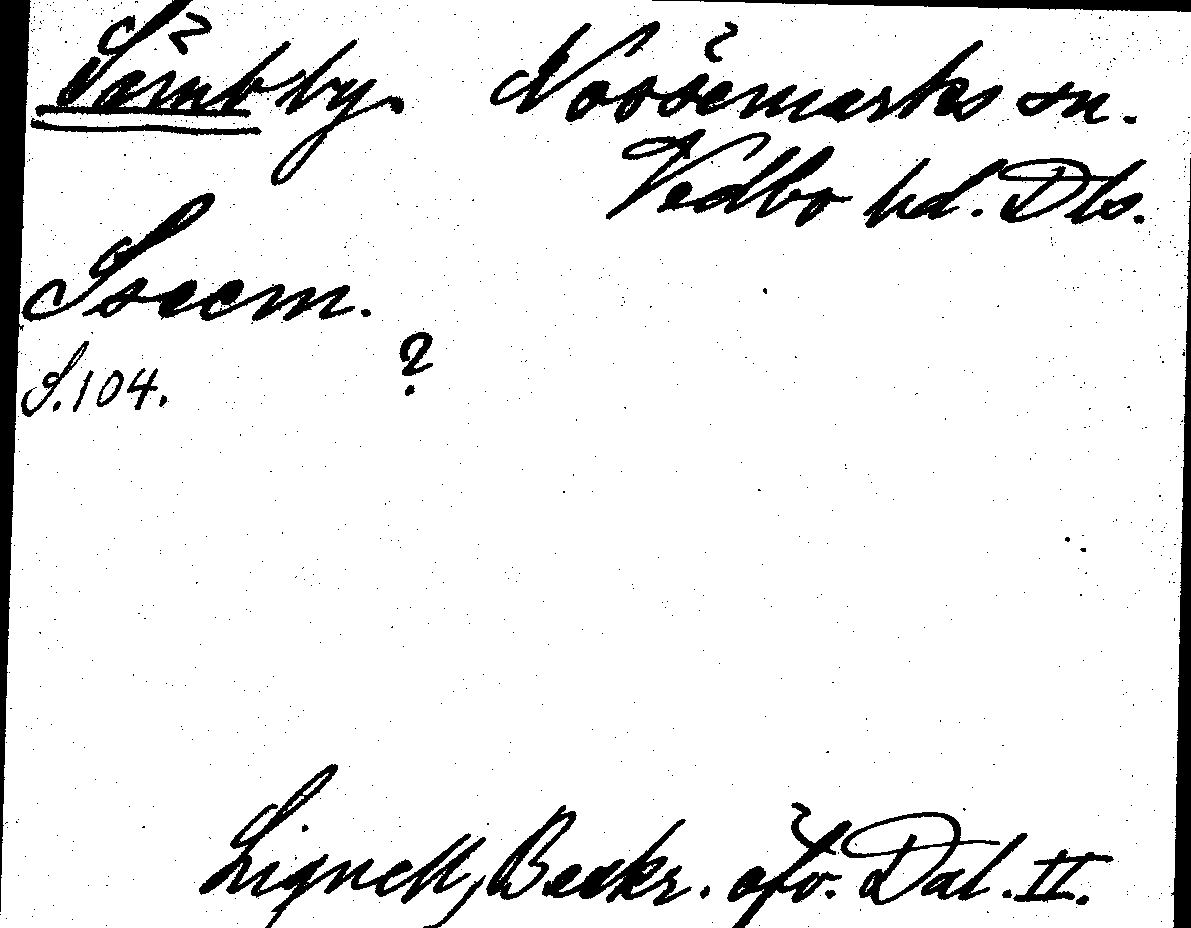 Sömb by. Nössemarks sn.
Vedbo hd. Dls.
Sœem.
S. 104. ?
Lignell, Beskr. öfv. Dal. II.